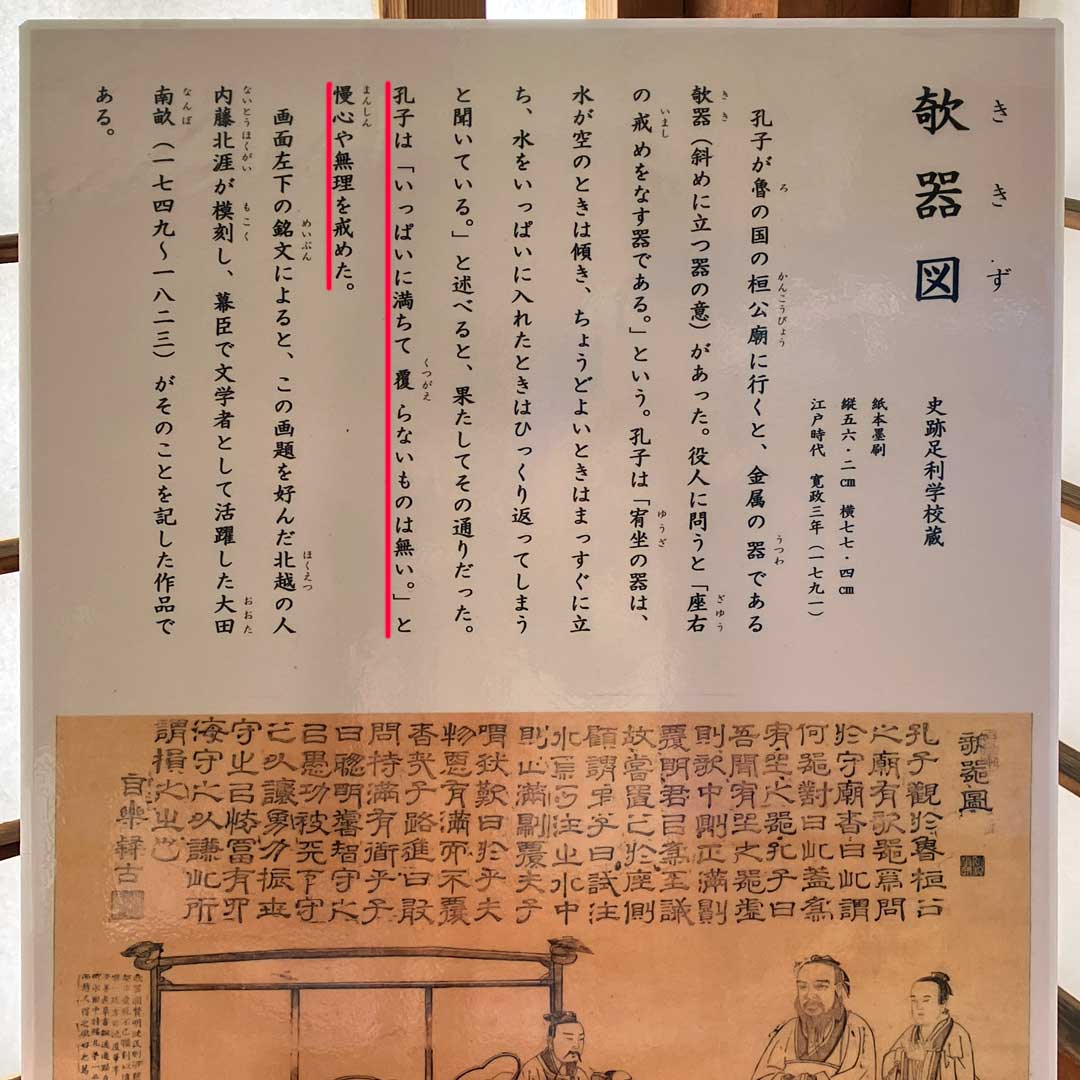 欹器図
ききず
史跡足利学校蔵
紙本墨刷
縦五六・二㎝ 横七七・四㎝
江戸時代 寛政三年(一七九一)
孔子が魯の国の桓公廟に行くと、金属の器である
欹器(斜めに立つ器の意)があった。役人に問うと「座右
の戒めをなす器である。」という。孔子は「宥坐の器は、
水が空のときは傾き、ちょうどよいときはまっすぐに立
ち、水をいっぱいに入れたときはひっくり返ってしまう
と聞いている。」と述べると、果たしてその通りだった。
孔子は「いっぱいに満ちて覆らないものは無い。」と
慢心や無理を戒めた。
画面左下の銘文によると、この画題を好んだ北越の人
内藤北涯が模刻し、幕臣で文学者として活躍した大田
南畝(一七四九〜一八二三)がそのことを記した作品で
ある。
欹器圖
孔子觀於魯桓公
之廟有欹器焉問
於守廟者曰此謂
何器對曰此蓋爲
宥坐之器孔子曰
吾聞宥坐之器虚
則欹中則正滿則
覆明君以爲至誡
故嘗置之於座側
顧謂弟子曰試注
水焉乃注之水中
則正滿則覆夫子
喟然歎曰於乎夫
物惡有滿而不覆
者哉子路進曰敢
問持滿有術乎子
曰聰明睿智守之
以愚功被天下守
之以讓勇力振世
守之以怯富有四
海守之以謙此所
謂損之之也